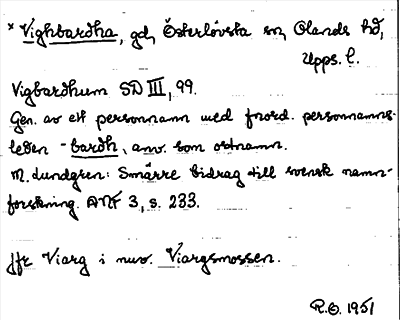 * Vighbardha, gd, Österlövsta sn, Olands hd,
Upps. l.
Vigbardhum SD III, 99.
Gen. av ett personnamn med fnord. personnamns-
leden -bardh, anv. som ortnamn.
M. Lundgren: Smärre bidrag till svensk namn-
forskning. ANF 3, s. 233.
Jfr Viarg i nuv. Viargsmossen.
R.O. 1951